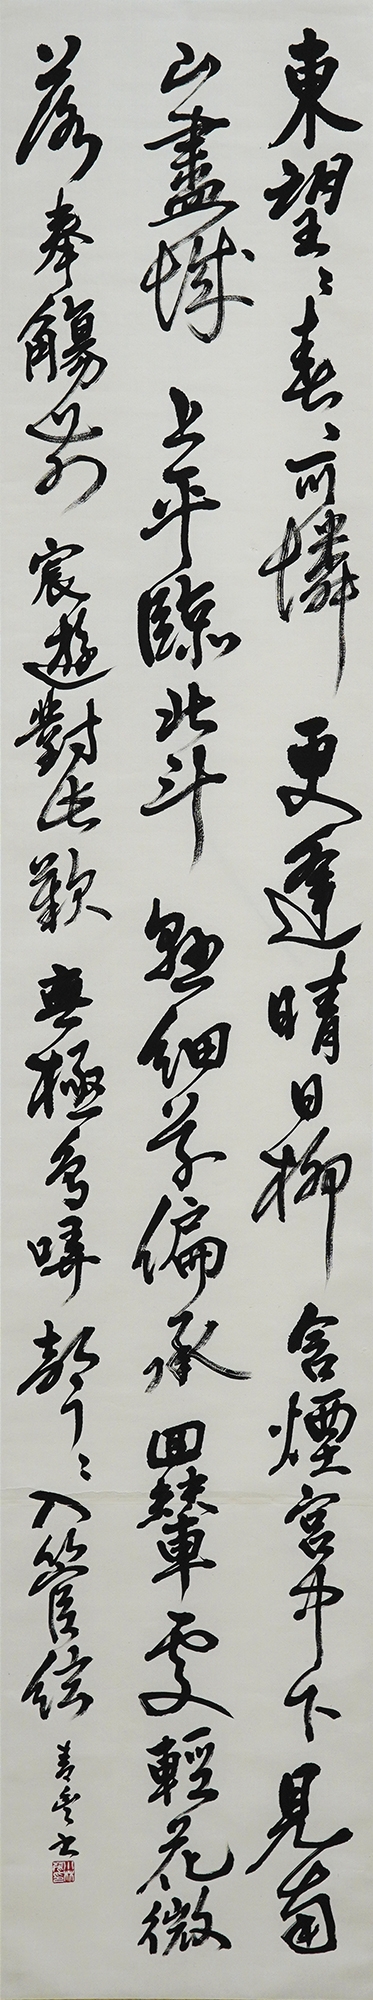 東望〻春〻可憐更逢晴日柳含煙宮中下見南
山盡城上平臨北斗懸細草偏承回輦處輕花微
落奉觴前宸遊對此歡無極鳥哢聲〻入管絃
書